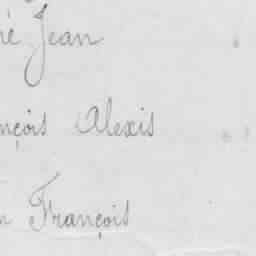 né Jean
nçois Alexis
n François